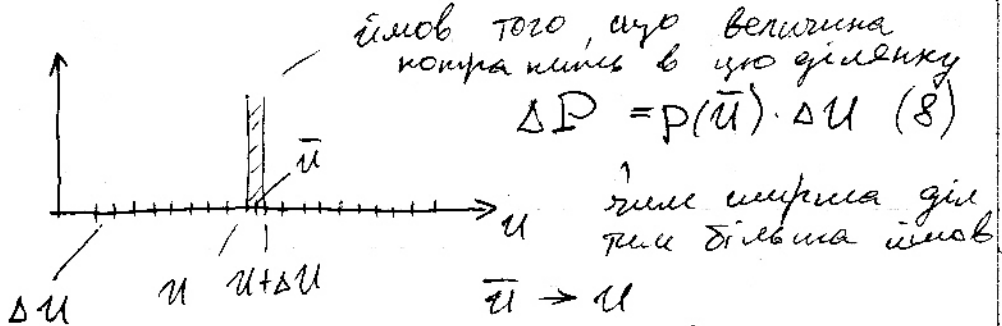 ймов того, що величина
потрапить в цю ділянку
ΔP = p(ū)·Δu (8)
ū
u
чим ширша діл
тим більша ймов
Δu u u+Δu
ū → u